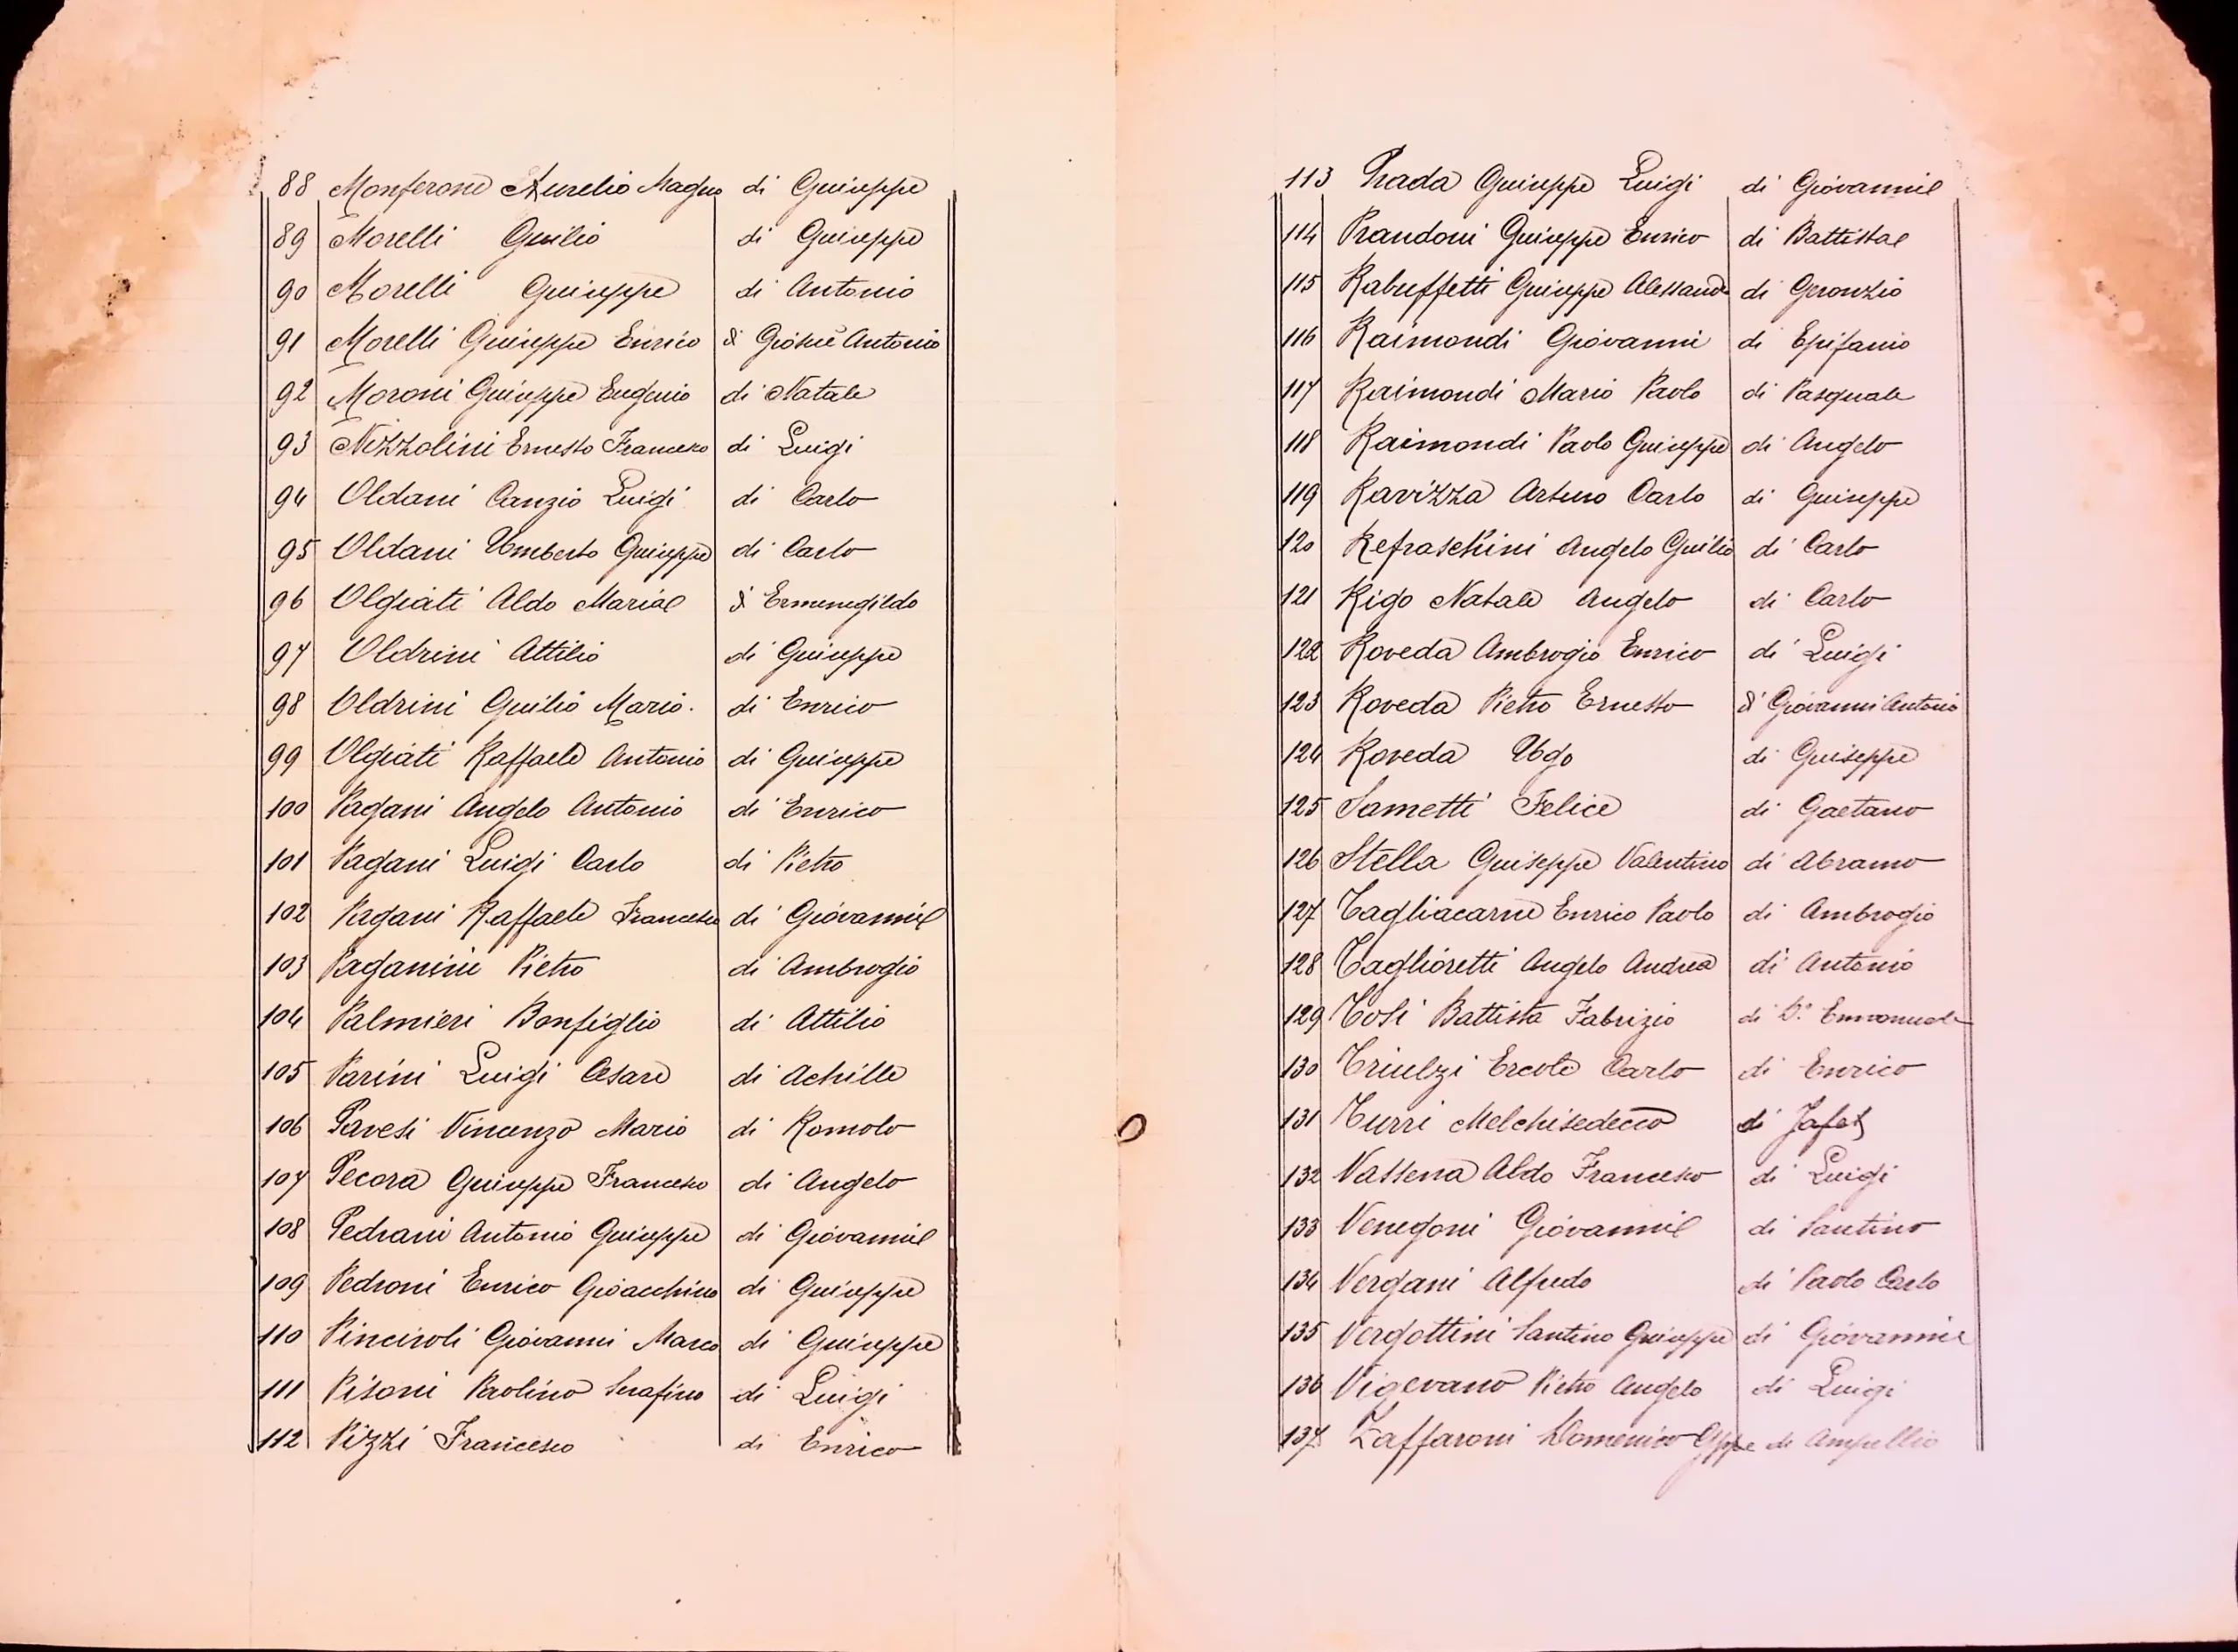 88 Monferone Aurelio Magno di Giuseppe
89 Morelli Giulio di Giuseppe
90 Morelli Giuseppe di Antonio
91 Morelli Giuseppe Enrico di Giosuè Antonio
92 Moroni Giuseppe Eugenio di Natale
93 Nizzolini Ernesto Francesco di Luigi
94 Oldani Canzio Luigi di Carlo
95 Oldani Umberto Giuseppe di Carlo
96 Olgiati Aldo Maria di Ermenegildo
97 Oldrini Attilio di Giuseppe
98 Oldrini Giulio Mario. di Enrico
99 Olgiati Raffaele Antonio di Giuseppe
100 Pagani Angelo Antonio di Enrico
101 Pagani Luigi Carlo di Pietro
102 Pagani Raffaele Francesco di Giovanni
103 Paganini Pietro di Ambrogio
104 Palmieri Bonfiglio di Attilio
105 Parini Luigi Cesare di Achille
106 Pavesi Vincenzo Mario di Romolo
107 Pecora Giuseppe Francesco di Angelo
108 Pedrani Antonio Giuseppe di Giovanni
109 Pedroni Enrico Gioacchino di Giuseppe
110 Pinciroli Giovanni Marco di Giuseppe
111 Pisoni Paolino Serafino di Luigi
112 Pizzi Francesco di Enrico
113 Prada Giuseppe Luigi di Giovanni
114 Prandoni Giuseppe Enrico di Battista
115 Rabuffetti Giuseppe Alessand di Geronzio
116 Raimondi Giovanni di Epifanio
117 Raimondi Mario Paolo di Pasquale
118 Raimondi Paolo Giuseppe di Angelo
119 Ravizza Arturo Carlo di Giuseppe
120 Refraschini Angelo Giulio di Carlo
121 Rigo Natale Angelo di Carlo
122 Roveda Ambrogio Enrico di Luigi
123 Roveda Pietro Ernesto di Giovanni Antonio
124 Roveda Ugo di Giuseppe
125 Sametti Felice di Gaetano
126 Stella Giuseppe Valentino di Abramo
127 Tagliacarne Enrico Paolo di Ambrogio
128 Taglioretti Angelo Andrea di Antonio
129 Tosi Battista Fabrizio di D.r Emanuele
130 Triulzi Ercole Carlo di Enrico
131 Turri Melchisedecco di Jafet
132 Vassena Aldo Francesco di Luigi
133 Venegoni Giovanni di Santino
134 Vergani Alfredo di Paolo Carlo
135 Vergottini Santino Giuseppe di Giovanni
136 Vigevano Pietro Angelo di Luigi
137 Zaffaroni Domenico Gppe di Ampellio